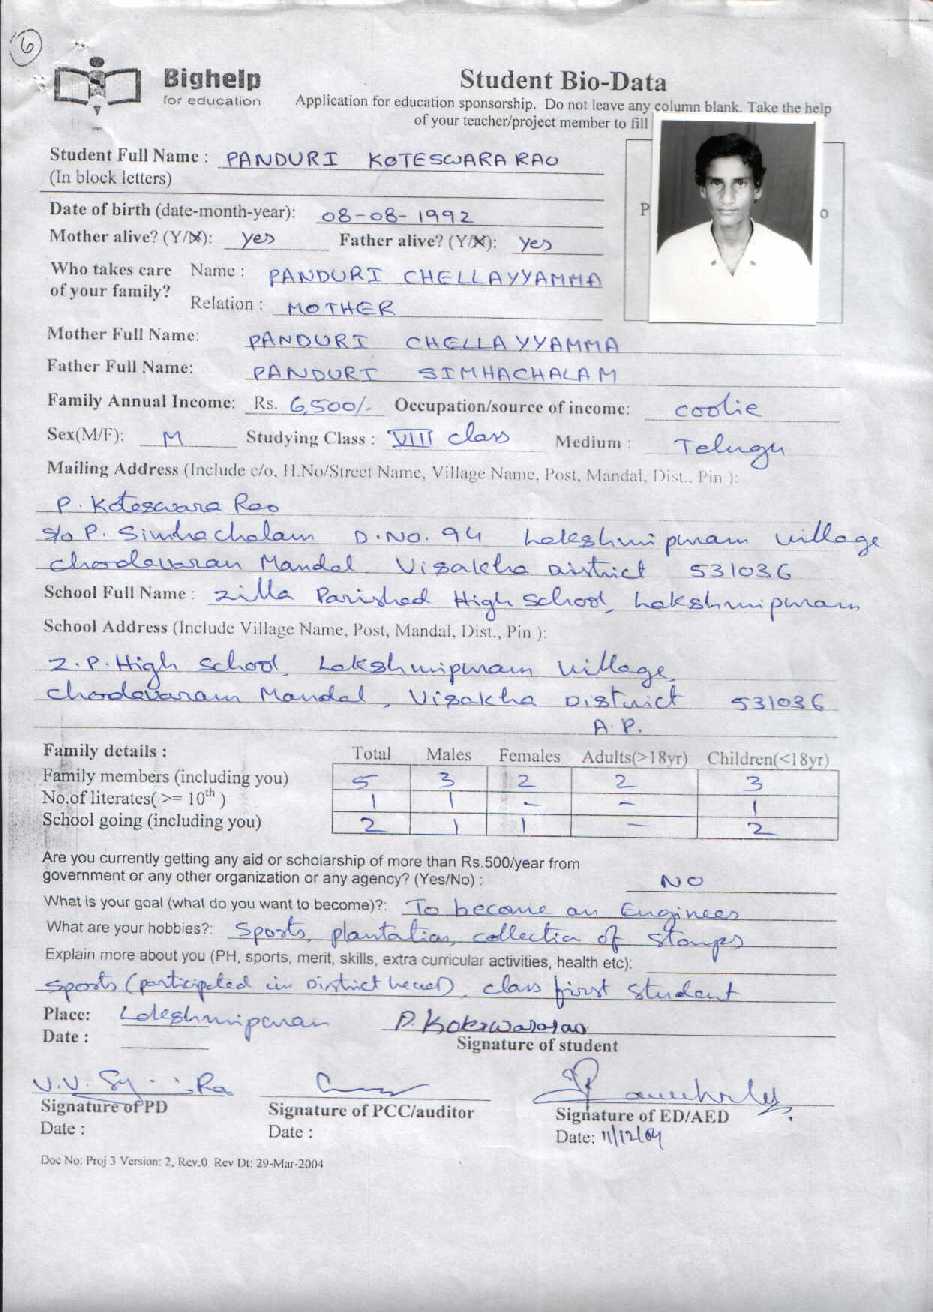 6
Bighelp
for education
Student Bio-Data
Application for education sponsorship. Do not leave any column blank. Take the help
of your teacher/project member to fill
Student Full Name : PANDURI KOTESWARA RAO
(In block letters)
P o
Date of birth (date-month-year): 08-08-1992
Mother alive? (Y/N): yes Father alive? (Y/N): yes
Who takes care Name : PANDURI CHELLAYYAMMA
of your family?
Relation : MOTHER
Mother Full Name: PANDURI CHELLAYYAMMA
Father Full Name: PANDURI SIMHACHALAM
Family Annual Income: Rs. 6,500/- Occupation/source of income: coolie
Sex(M/F): M Studying Class : VIII class Medium : Telugu
Mailing Address (Include c/o, H.No/Street Name, Village Name, Post, Mandal, Dist., Pin ):
P. Koteswara Rao
s/o P. Simhachalam D.No. 94 Lakshmipuram village
chodavaram Mandal Visakha District 531036
School Full Name : Zilla Parishad High School, Lakshmipuram
School Address (Include Village Name, Post, Mandal, Dist., Pin ):
Z.P. High school, Lakshmipuram village,
chodavaram Mandal, Visakha District 531036
A.P.
Family details : Total Males Females Adults(>18yr) Children(<18yr)
Family members (including you) 5 3 2 2 3
No.of literates( >= 10th ) 1 1 - - 1
School going (including you) 2 1 1 - 2
Are you currently getting any aid or scholarship of more than Rs.500/year from
government or any other organization or any agency? (Yes/No) : NO
What is your goal (what do you want to become)?: To become an Engineer
What are your hobbies?: Sports, plantation, collection of stamps
Explain more about you (PH, sports, merit, skills, extra curricular activities, health etc):
sports (participated in District level), class first student
Place: Lakshmipuram P. Koteswararao
Date : Signature of student
Signature of PD Signature of PCC/auditor Signature of ED/AED
Date : Date : Date: 11/12/04
Doc No: Proj 3 Version: 2, Rev.0 Rev Dt: 29-Mar-2004